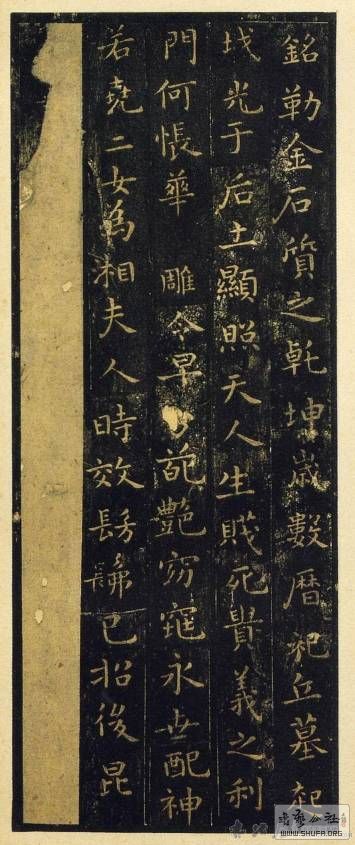 銘勒金石質之乹坤歲數曆祀丘墓起
坟光于后土顯照天人生賤死貴義之利
門何悵華 雕令早 葩艷窈窕永世配神
若堯二女為湘夫人時效髣髴已招後昆
WWW.SHUFA.ORG